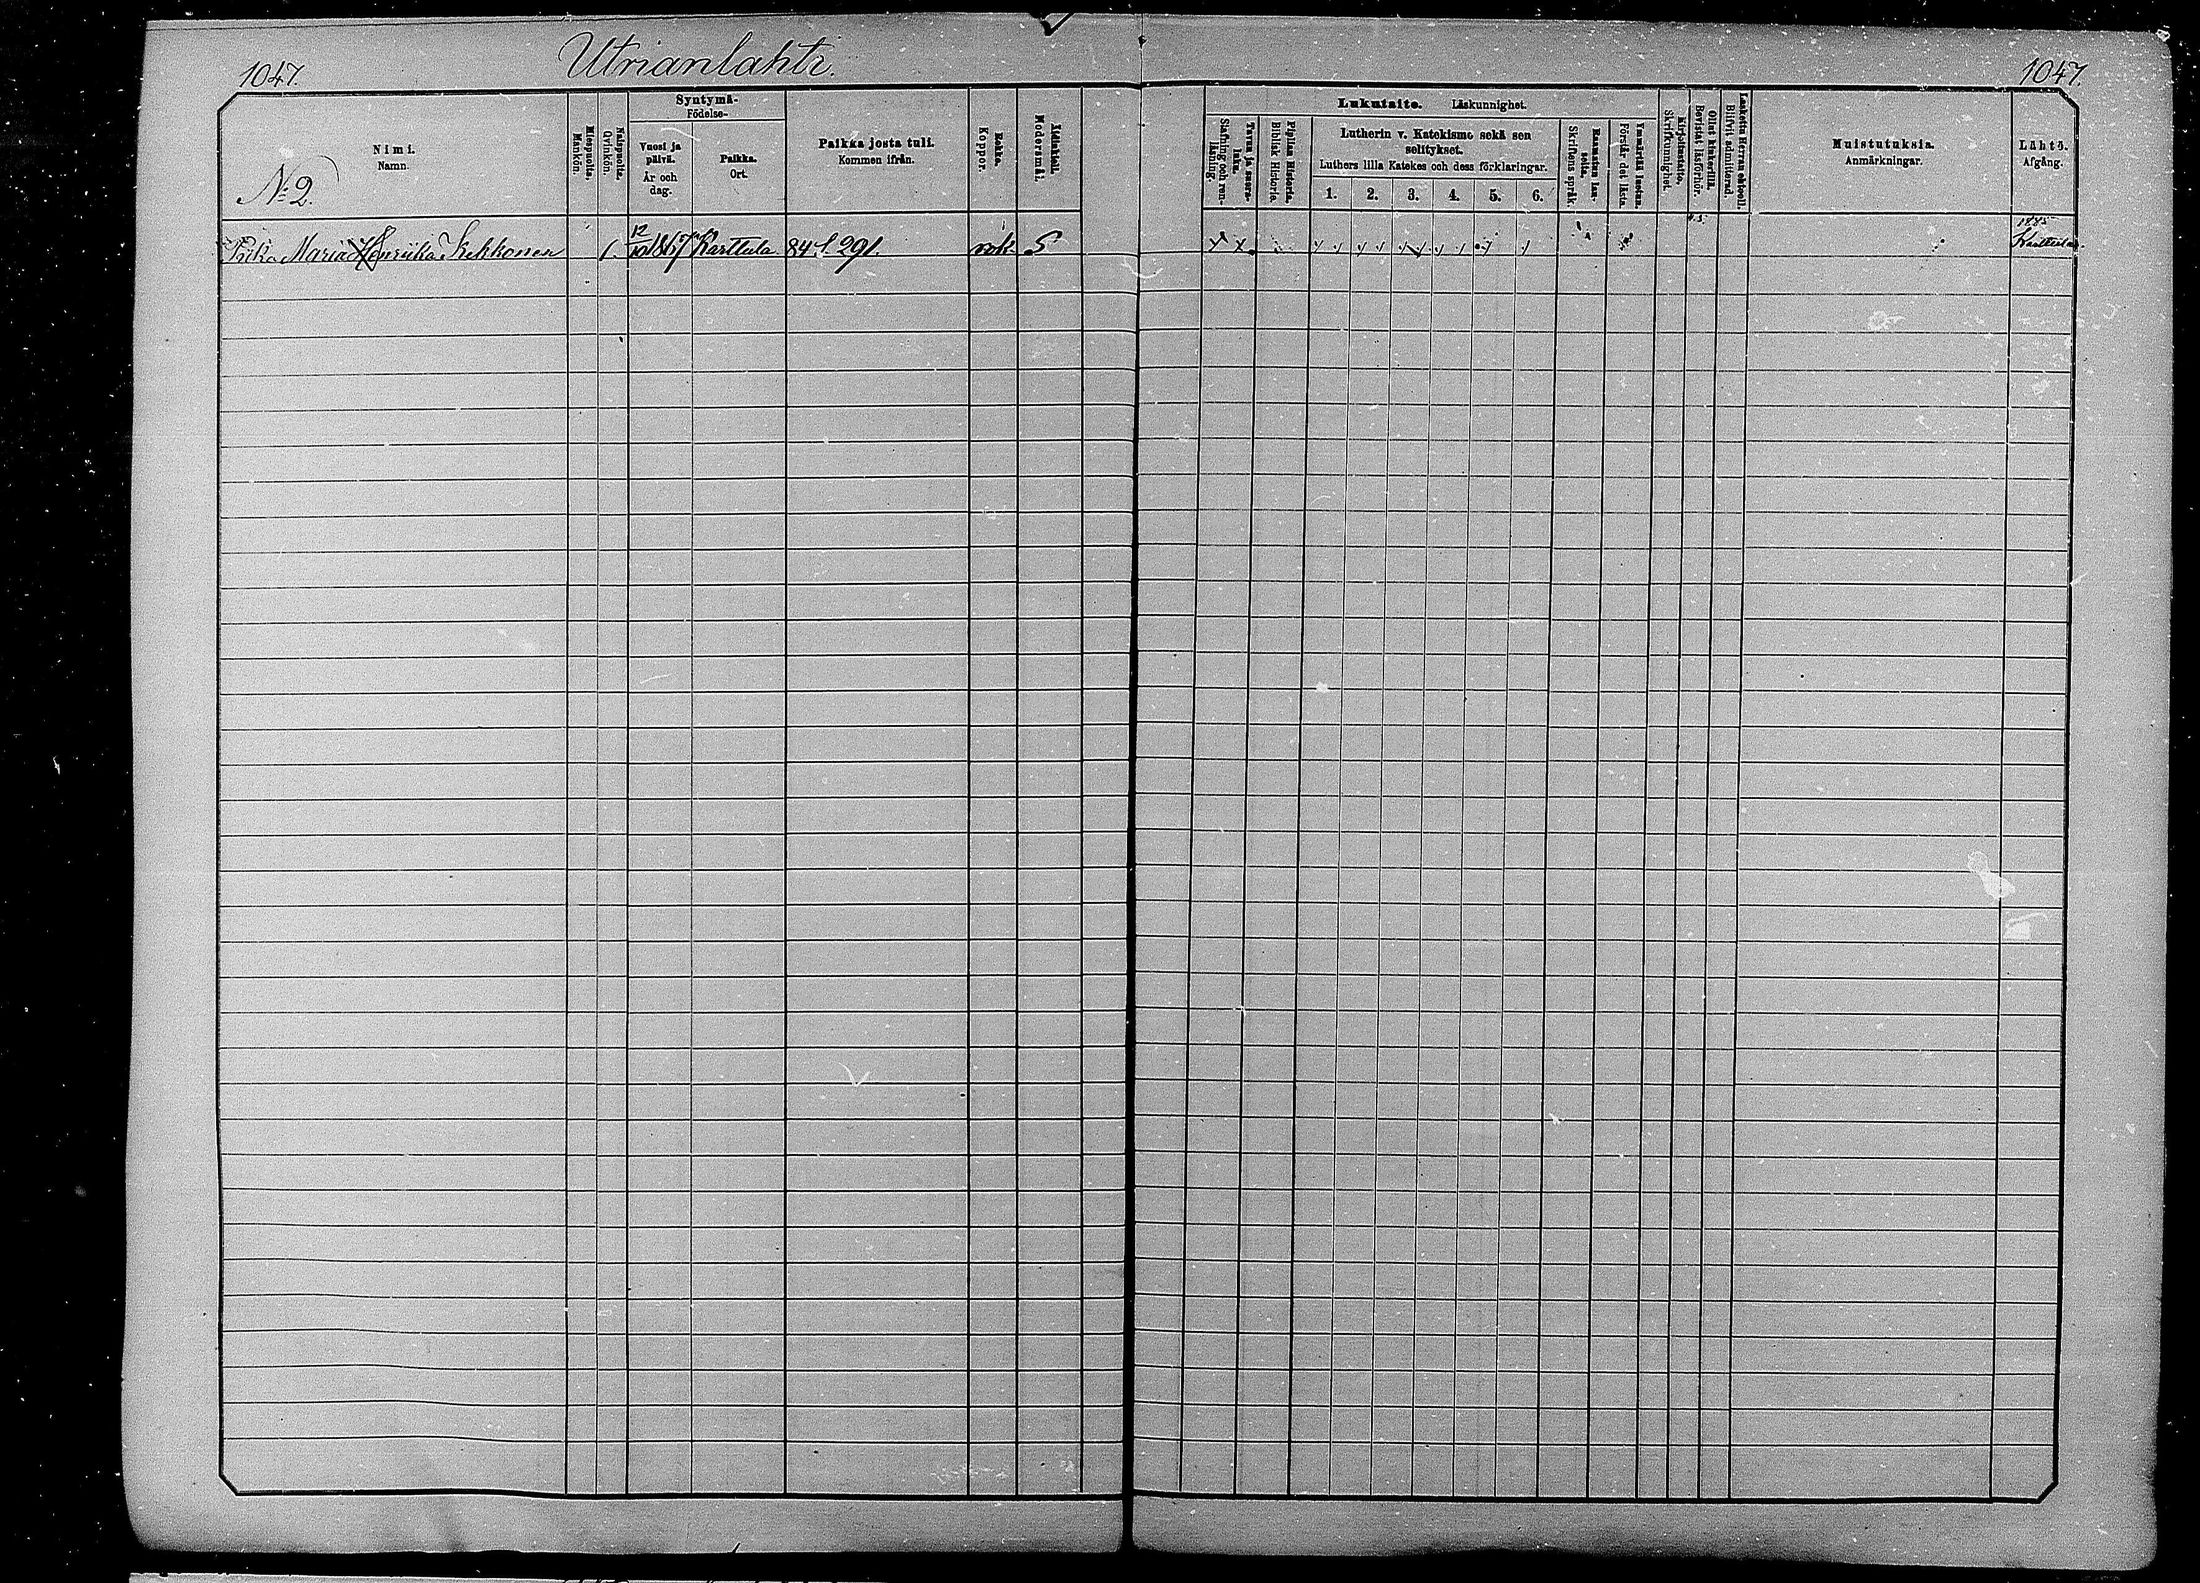 1047. Utrianlahti. 1047.
Nimi.
Namn.
N:o 2.
Miespuolia.
Mankön.
Naispuolia.
Qvinkön.
Syntymä-
Födelse-
Vuosi ja
päivä.
År och
dag.
Paikka.
Ort.
Paikka josta tuli.
Kommen ifrån.
Rokko.
Koppor.
Äidinkieli.
Modersmål.
Lukutaito. Läskunnighet.
Tavuu ja suora-
luku.
Stafning och ren-
läsning.
Piplian Historia.
Biblisk Historia.
Lutherin v. Katekismo sekä sen
selitykset.
Luthers lilla Katekes och dess förklaringar.
1. 2. 3. 4. 5. 6.
Raamatun lau-
seita.
Skriftens språk.
Ymmärtää luetun.
Förstår det lästa.
Kirjoitustaito.
Skrifkunnighet.
Ollut kinkerillä.
Bevistat läsförhör.
Laskettu Herran ehtooll.
Blifvit admitterad.
Muistutuksia.
Anmärkningar.
Lähtö.
Afgång.
Piika Maria Henriika Kekkonen 1. 12/10 1867 Karttula. 84 S. 291. rok. S 1885 Karttulaan.